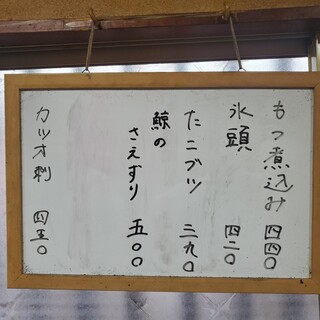 もつ煮込み 四四〇
氷頭 四二〇
たこブツ 三九〇
鯨の
さえずり 五〇〇
カツオ刺 四五〇